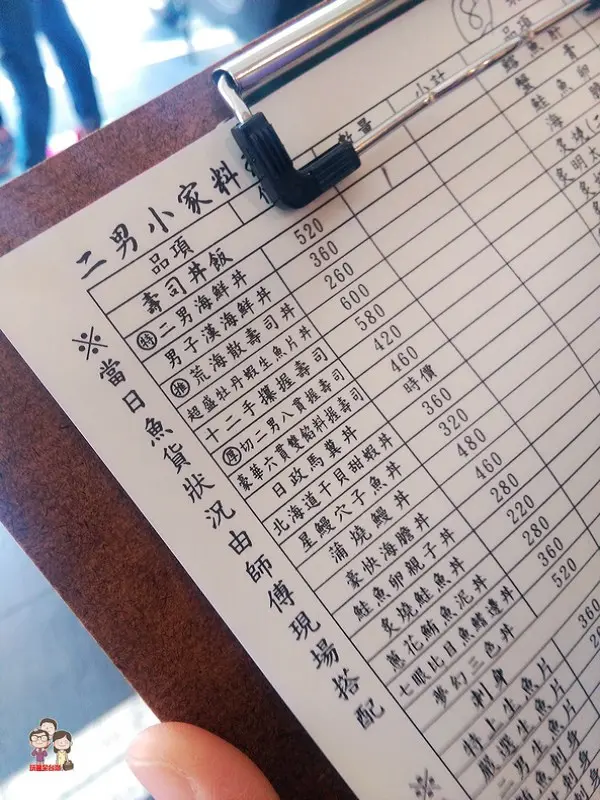 二男小家料
品項
數量
小計
品項
壽司丼飯
特 二男海鮮丼 520
男子漢海鮮丼 360
推 荒海散壽司丼 260
超盛牡丹蝦生魚片丼 600
十二手攘握壽司 580
厚 切二男八貫握壽司 420
豪華六貫雙餡料握壽司 460
日政馬糞丼 時價
北海道干貝甜蝦丼 360
星鰻穴子魚丼 320
蒲燒鰻丼 480
豪快海膽丼 460
鮭魚卵親子丼 280
炙燒鮭魚丼 220
蔥花鮪魚泥丼 280
七眼比目魚鰭邊丼 360
夢幻三色丼 520
刺身
特上生魚片 360
嚴選生魚片
二男生魚片
※當日魚貨狀況由師傅現場搭配
※
8
鮭魚卵
炙明太